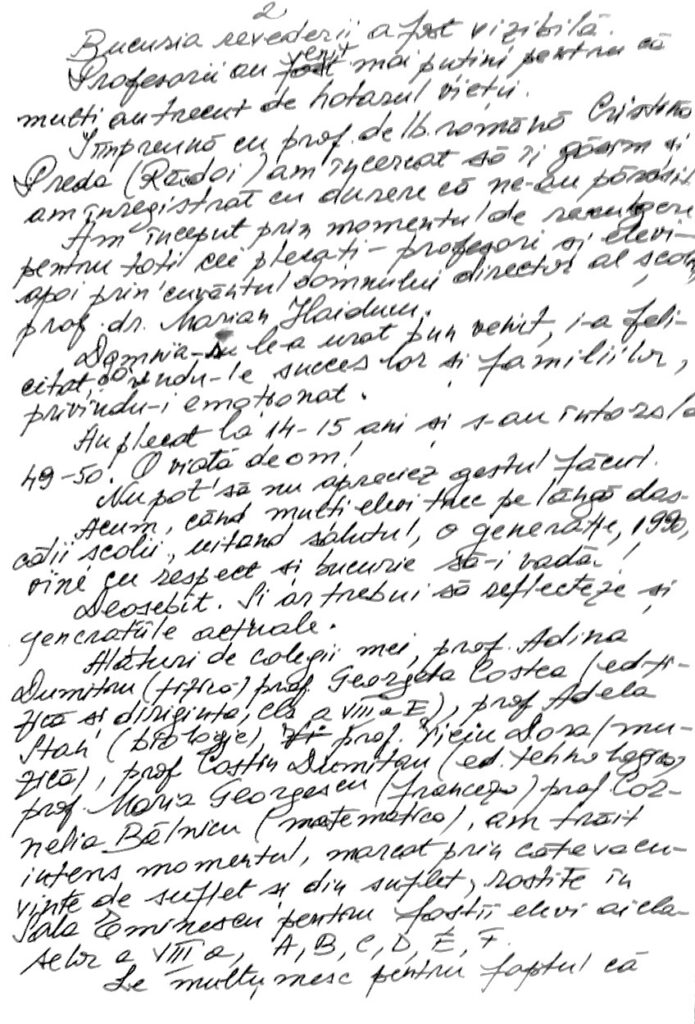 2
Bucuria revederii a fost vizibilă.
Profesorii au venit mai puțini pentru că
mulți au trecut de hotarul vieții.
Împreună cu prof. de lb. română Cristina
Preda (Rădoi) am încercat să îi găsim și
am înregistrat cu durere că ne-au părăsit.
Am început prin momentul de reculegere
pentru toți cei plecați - profesori și elevi -
apoi prin cuvântul domnului director al școlii,
prof. dr. Marian Haiducu.
Domnia-sa le-a urat bun venit, i-a feli-
citat, dorindu-le succes lor și familiilor,
privindu-i emoționat.
Au plecat la 14-15 ani și s-au întors la
49-50! O viață de om!
Nu pot să nu apreciez gestul făcut.
Acum, când mulți elevi trec pe lângă das-
călii școlii, uitând salutul, o generație, 1990,
vine cu respect și bucurie să-i vadă!
Deosebit. Și ar trebui să reflecteze și
generațiile actuale.
Alături de colegii mei, prof. Adina
Dumitru (fizică) prof. Georgeta Costea (ed. fi-
zică și diriginta, cls a VIII a E), prof Adela
Stan (biologie), prof. Viciu Dora (mu-
zică), prof Costin Dumitru (ed. tehnologică,
prof. Maria Georgescu (franceză) prof Cor-
nelia Bălnicu (matematică), am trăit
intens momentul, marcat prin câteva cu-
vinte de suflet și din suflet, rostite în
Sala Eminescu pentru foștii elevi ai cla-
selor a VIII a, A, B, C, D, E, F.
Le mulțumesc pentru faptul că